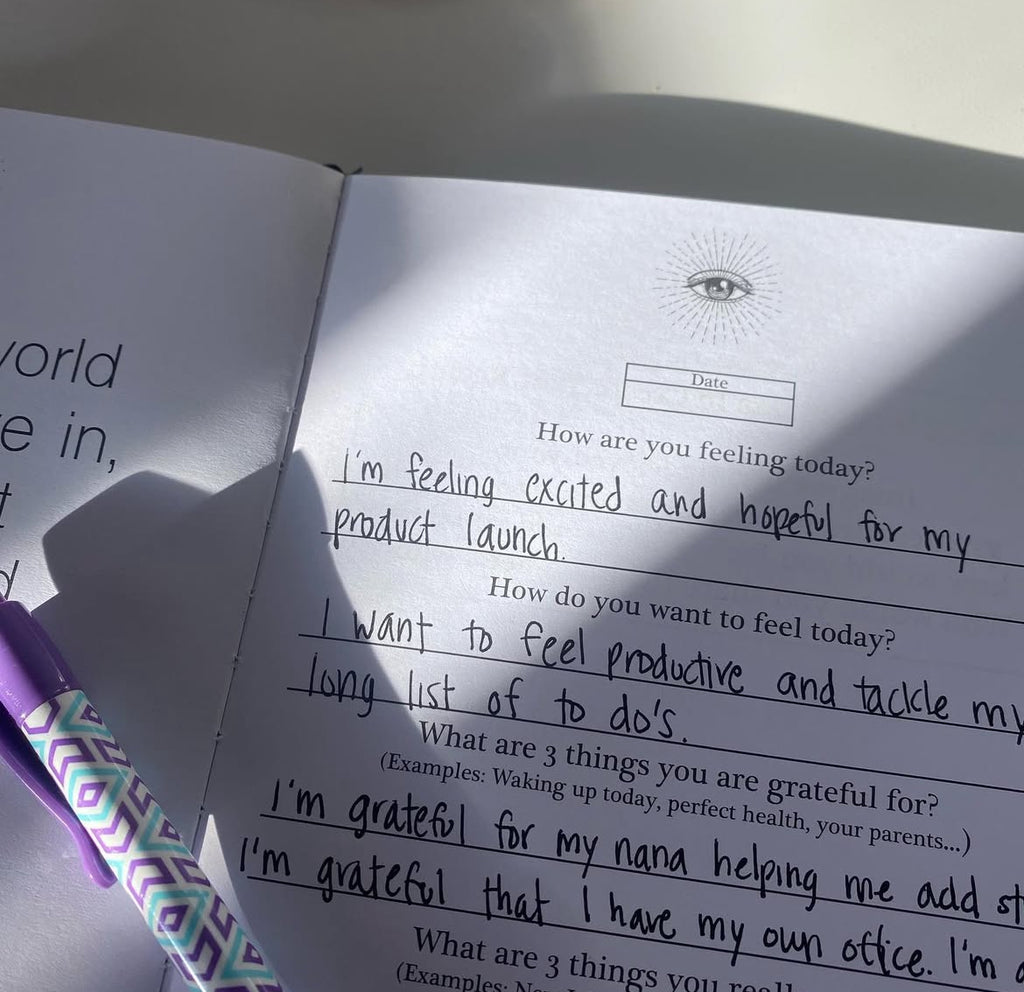 world
in,
Date
How are you feeling today?
I'm feeling excited and hopeful for my
product launch.
How do you want to feel today?
I want to feel productive and tackle my
long list of to do's.
What are 3 things you are grateful for?
(Examples: Waking up today, perfect health, your parents...)
I'm grateful for my nana helping me add
I'm grateful that I have my own office. I'm
What are 3 things you
(Examples: